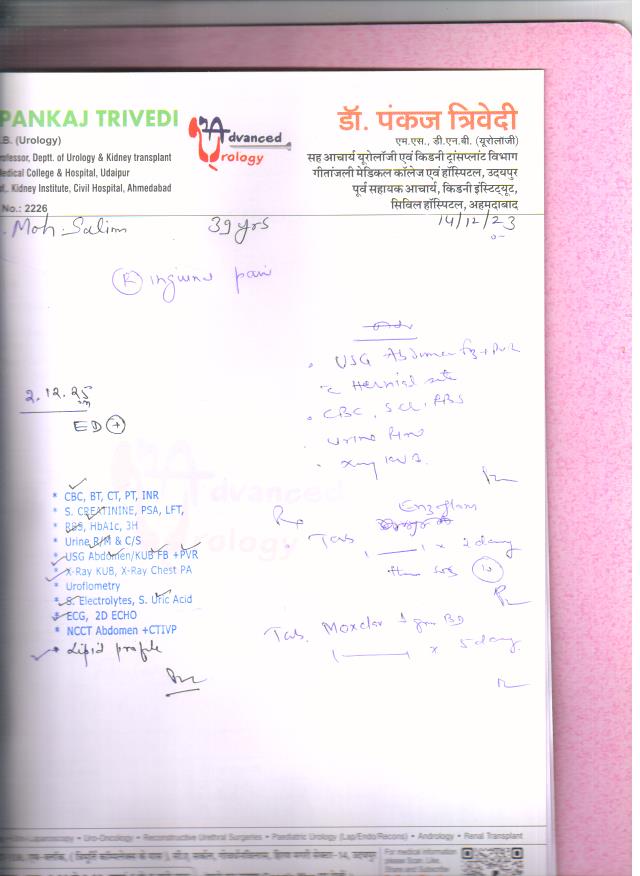 PANKAJ TRIVEDI
.B. (Urology)
rofessor, Deptt. of Urology & Kidney transplant
edical College & Hospital, Udaipur
., Kidney Institute, Civil Hospital, Ahmedabad
No.: 2226
Advanced
Urology
डॉ. पंकज त्रिवेदी
एम.एस., डी.एन.बी. (यूरोलॉजी)
सह आचार्य यूरोलॉजी एवं किडनी ट्रांसप्लांट विभाग
गीतांजली मेडिकल कॉलेज एवं हॉस्पिटल, उदयपुर
पूर्व सहायक आचार्य, किडनी इंस्टिट्यूट,
सिविल हॉस्पिटल, अहमदाबाद
. Moh. Salim 39 yrs 14/12/23
(R) inguinal pain
. USG Abdomen FB + PVR
c Hernial site
. CBC, S.Cr, RBS
. Urine R/M
. Xray
2.12.25
ED (+)
* CBC, BT, CT, PT, INR
* S. CREATININE, PSA, LFT,
* RBS, HbA1c, 3H
* Urine R/M & C/S
* USG Abdomen/KUB FB +PVR
* X-Ray KUB, X-Ray Chest PA
* Uroflometry
* S. Electrolytes, S. Uric Acid
* ECG, 2D ECHO
* NCCT Abdomen +CTIVP
* Lipid profile
Rx
Enzoflam
. Tab 1 x 2 days
then SOS (10)
Tab. Moxclav 1 gm BD
1 x 5 days
Advanced
Urology
Laparoscopy • Uro-Oncology • Reconstructive Urethral Surgeries • Paediatric Urology (Lap/Endo/Recons) • Andrology • Renal Transplant
For medical information
please Scan, Like,
Share and Subscribe